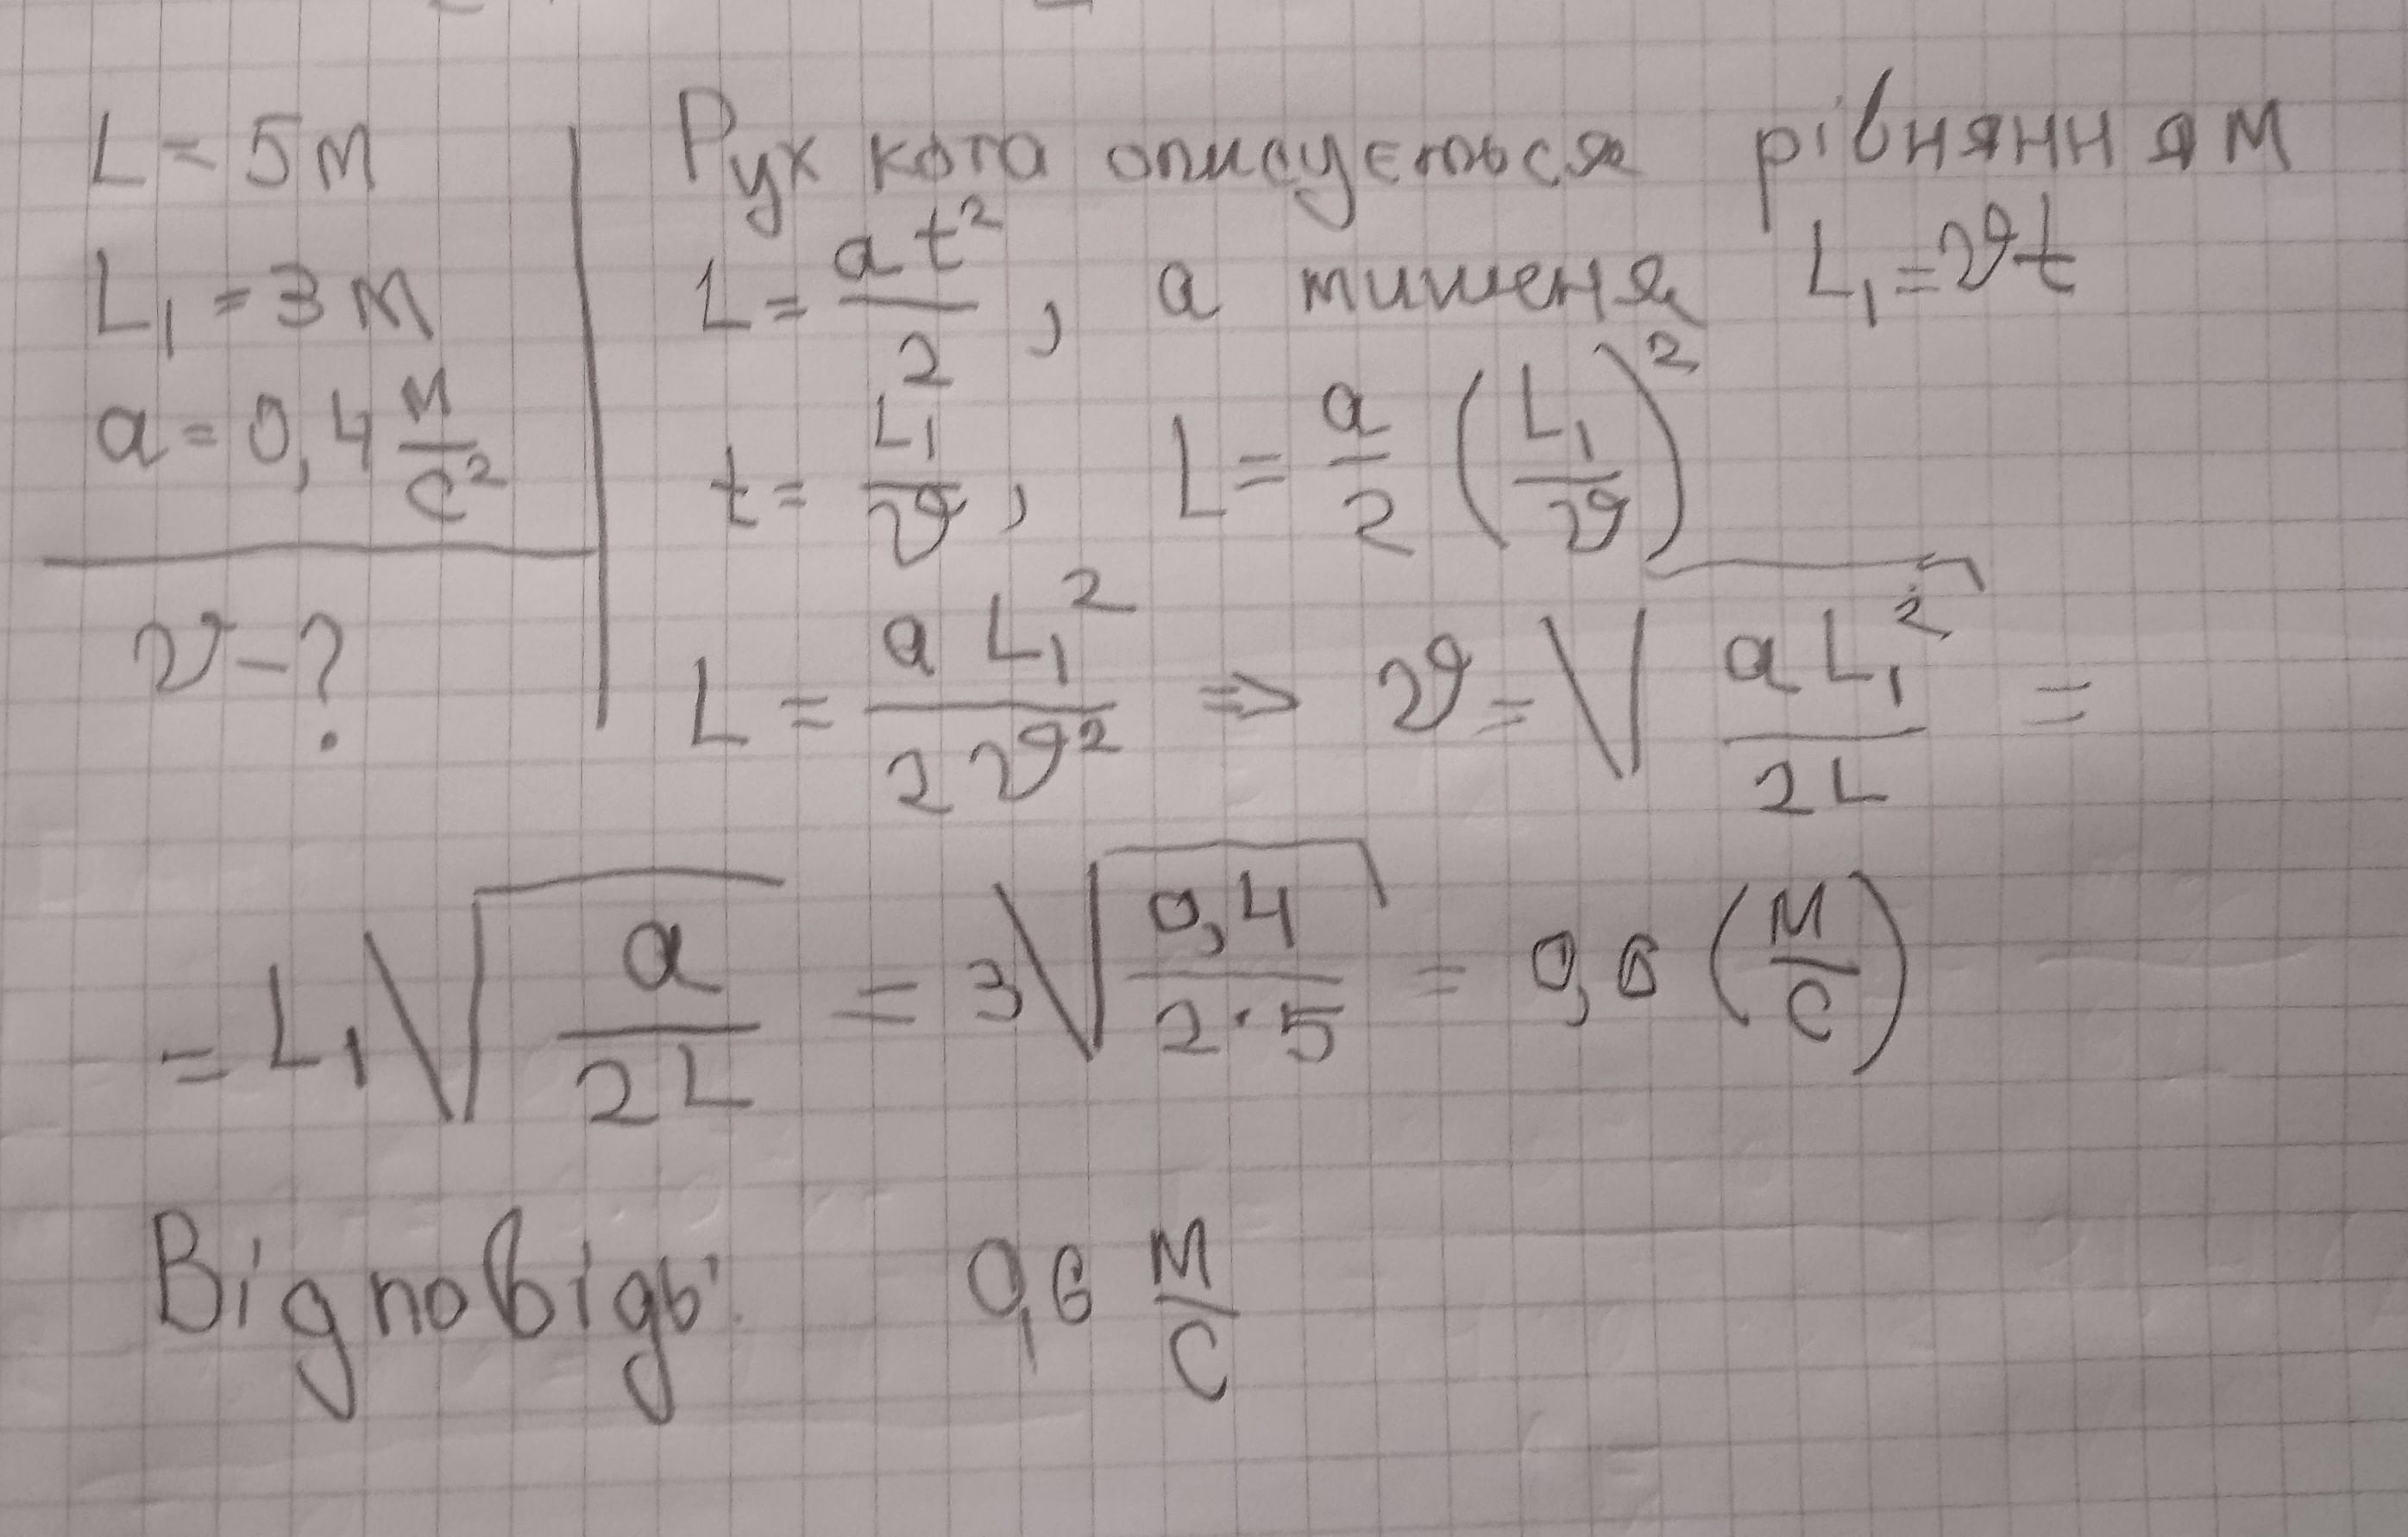 L = 5 м
L₁ = 3 м
a = 0,4 м/с²
υ - ?
Рух кота описується рівнянням
L = at²/2, а мишеня L₁ = υt
t = L₁/υ, L = a/2 (L₁/υ)²
L = aL₁²/2υ² ⇒ υ = √(aL₁²/2L) =
= L₁√(a/2L) = 3√(0,4/2·5) = 0,6 (м/с)
Відповідь: 0,6 м/с